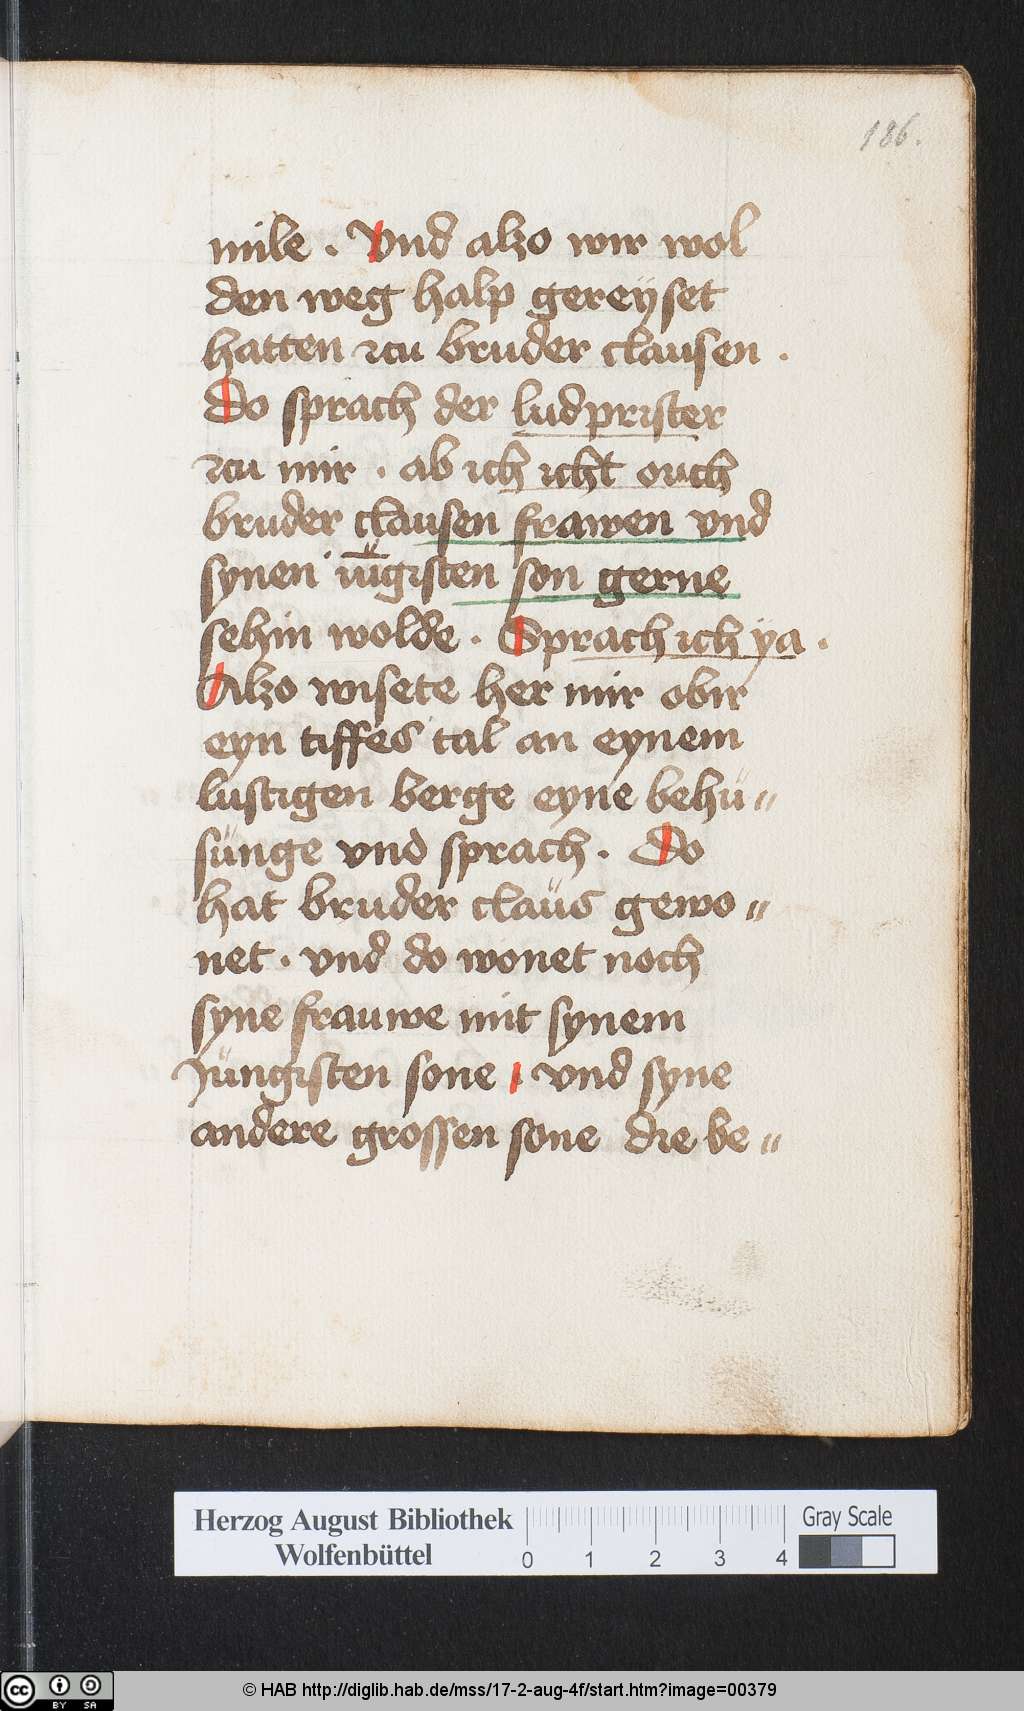 186.
mile . Vnd alzo wir wol
den weg halp gereÿset
hatten zcu bruder clausen .
Do sprach der ludprister
zcu mir . ab ich icht ouch
bruder clausen frawen vnd
synen iu̅gisten son gerne
sehin wolde . Sprach ich ya .
Alzo wisete her mir obir
eyn tiffes tal an eynem
lustigen berge eyne behü〃
sünge vnd sprach . Do
hat bruder claüs gewo〃
net . vnd do wonet noch
syne frauwe mit synem
Jüngisten sone . vnd syne
andere grossen sone die be〃
Herzog August Bibliothek
Wolfenbüttel
0 1 2 3 4
Gray Scale
cc BY SA
© HAB http://diglib.hab.de/mss/17-2-aug-4f/start.htm?image=00379